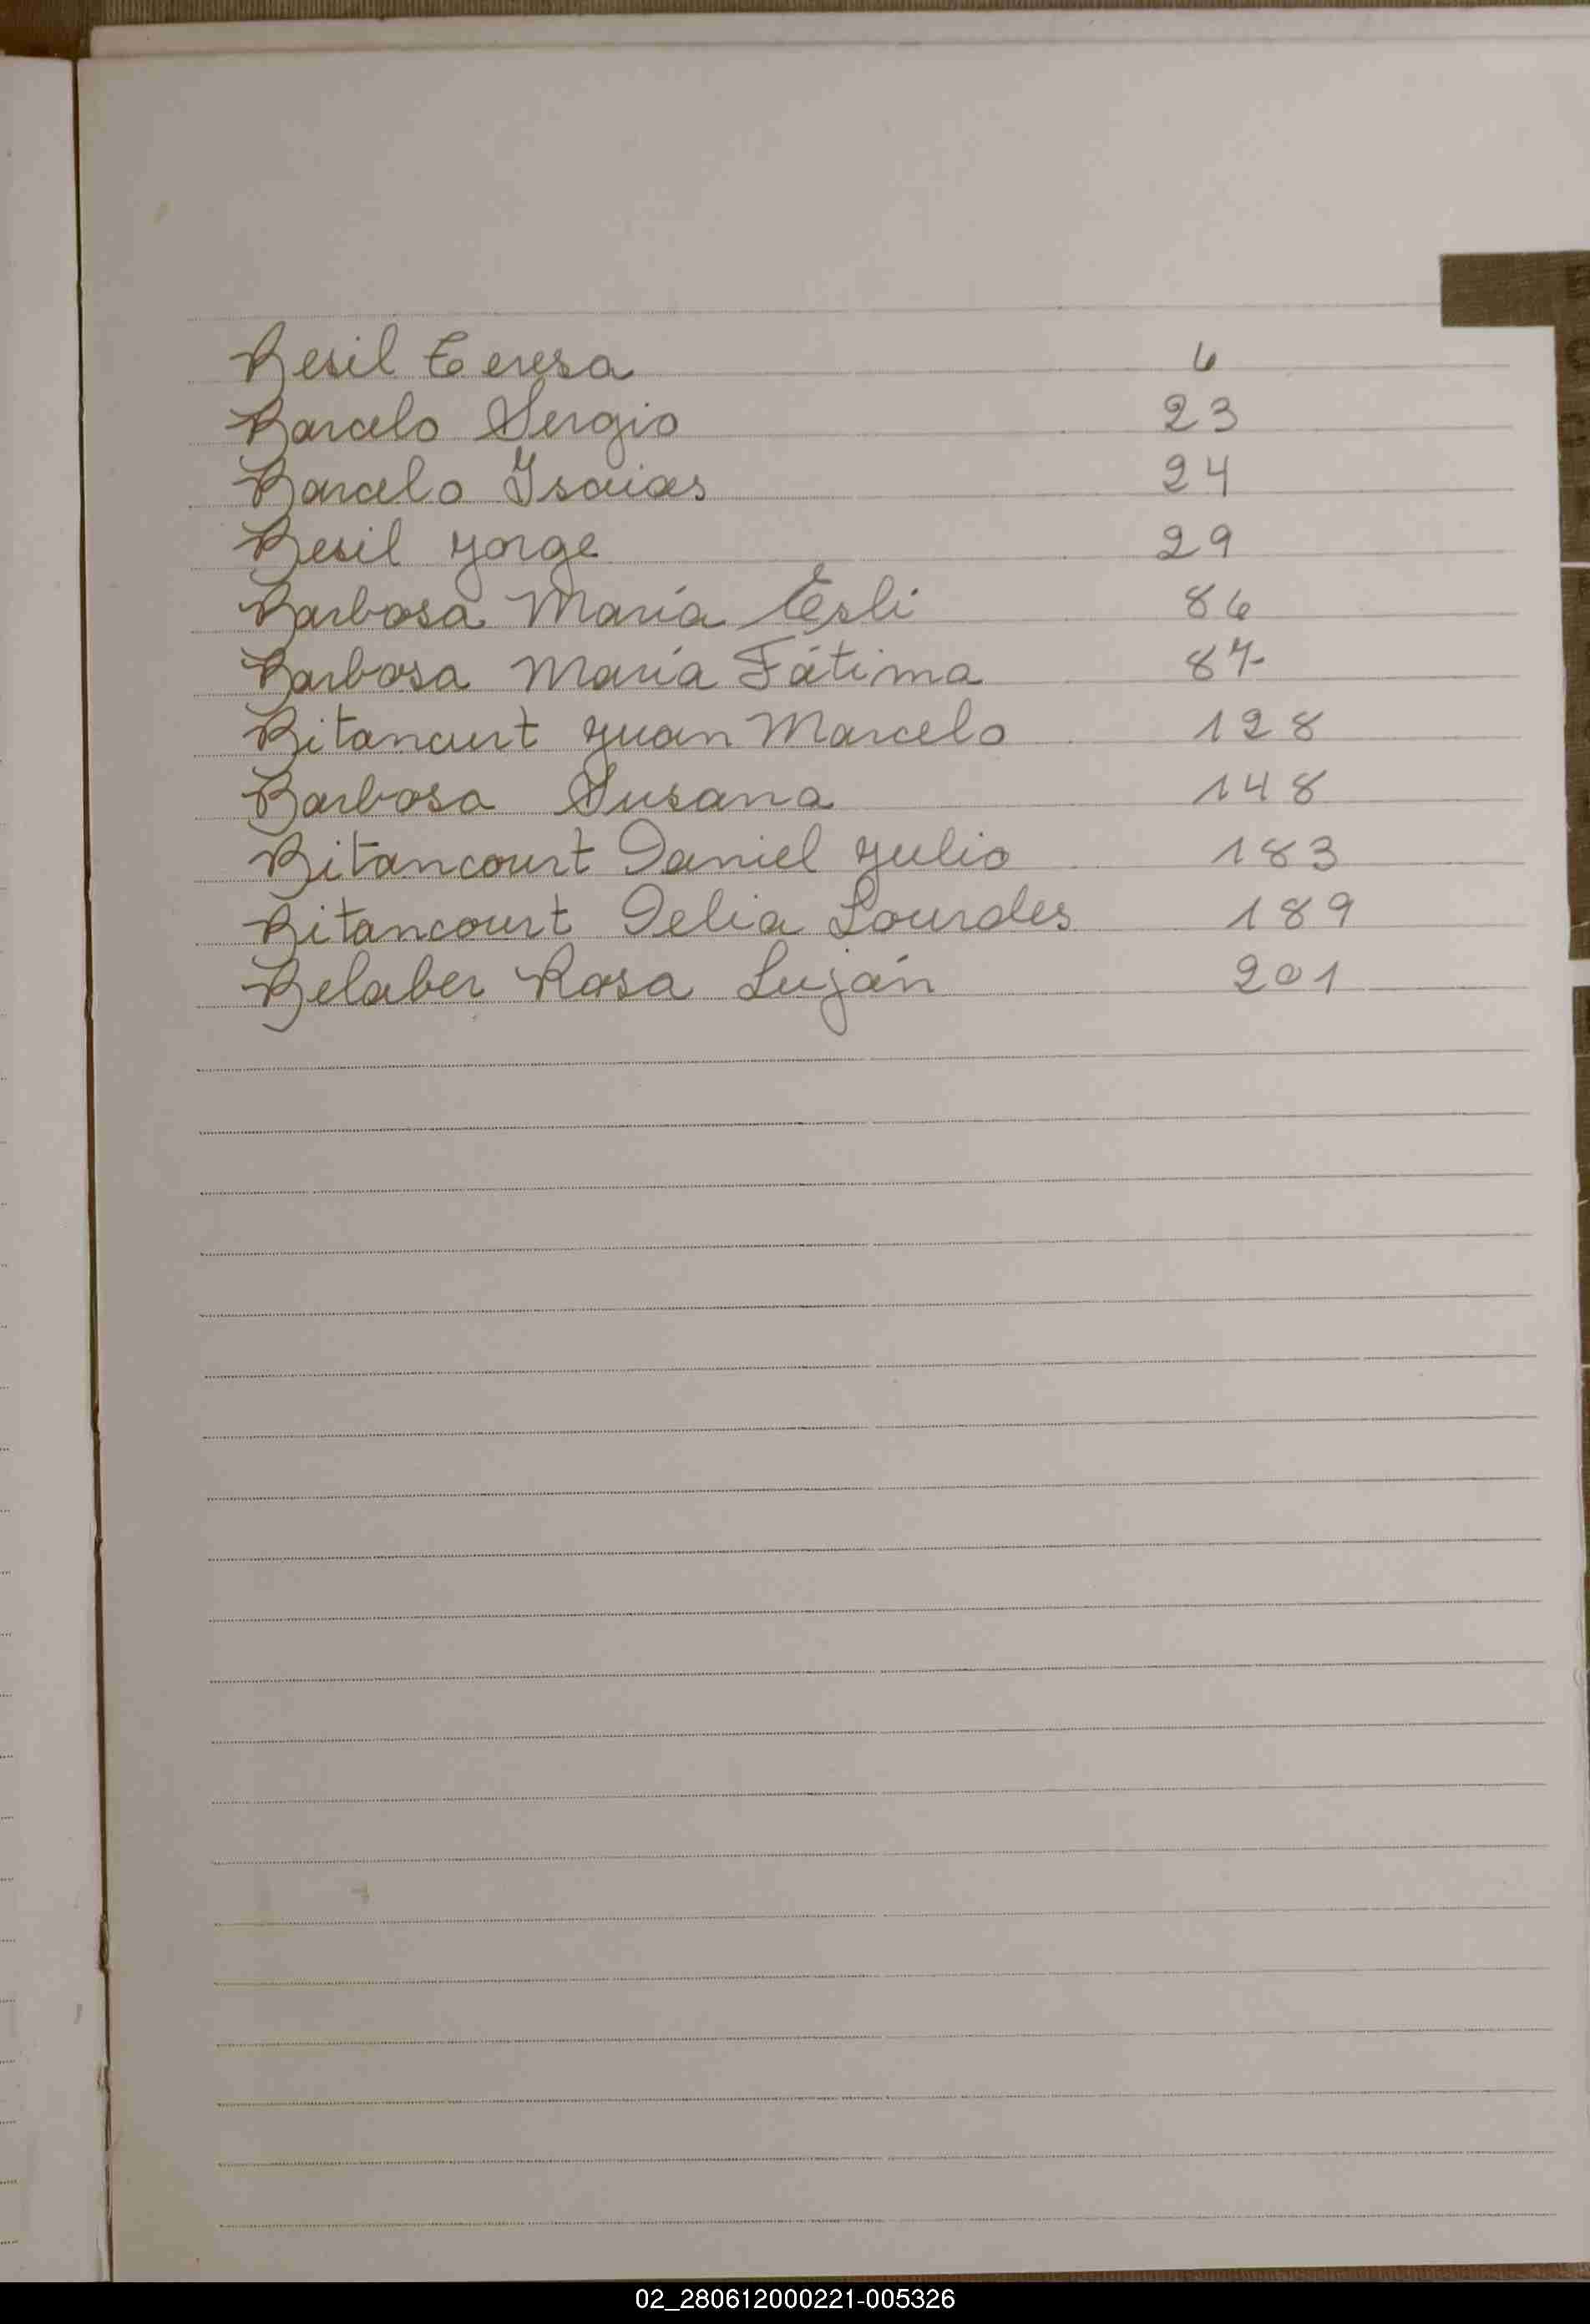 Besil Teresa 6
Barcelo Sergio 23
Barcelo Isaias 24
Besil Jorge 29
Barbosa María Esli 86
Barbosa María Fátima 87
Bitancurt Juan Marcelo 128
Barbosa Susana 148
Bitancourt Daniel Julio 183
Bitancourt Delia Lourdes 189
Belaber Rosa Luján 201
02_280612000221-005326